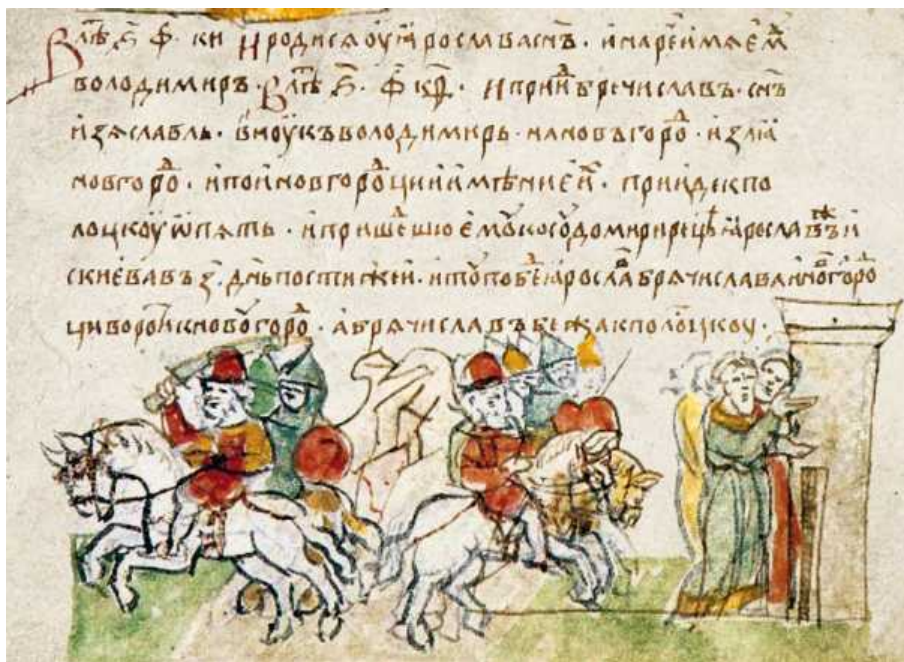 В лѣ҃ ҂ѕ҃ ф҃ ки҃ И родися оу ꙗрослава сн҃ъ · и нарє имя ємꙋ
володимиръ · В лѣ҃ ҂ѕ҃ ф҃ к҃ѳ · и приидⷣє брячиславъ · сн҃ъ
изяславль · вноукъ володимирь · на новъгороⷣ · и зая
новгороⷣ · и пои новгороⷣци и имѣниє иⷯ · прииде к по
лоцкоу ѡпять · и пришеⷣшю ємꙋ к сꙋдомири рецѣ · ꙗрославъ и
с києва въ з҃ · дн҃ь постиже и · и тꙋ побѣⷣ ꙗрославⷧ брячислава и новⷢгороⷣ
ци воротⷩи к новꙋгороⷣ · а брячиславъ бежа к полоцкоу ·